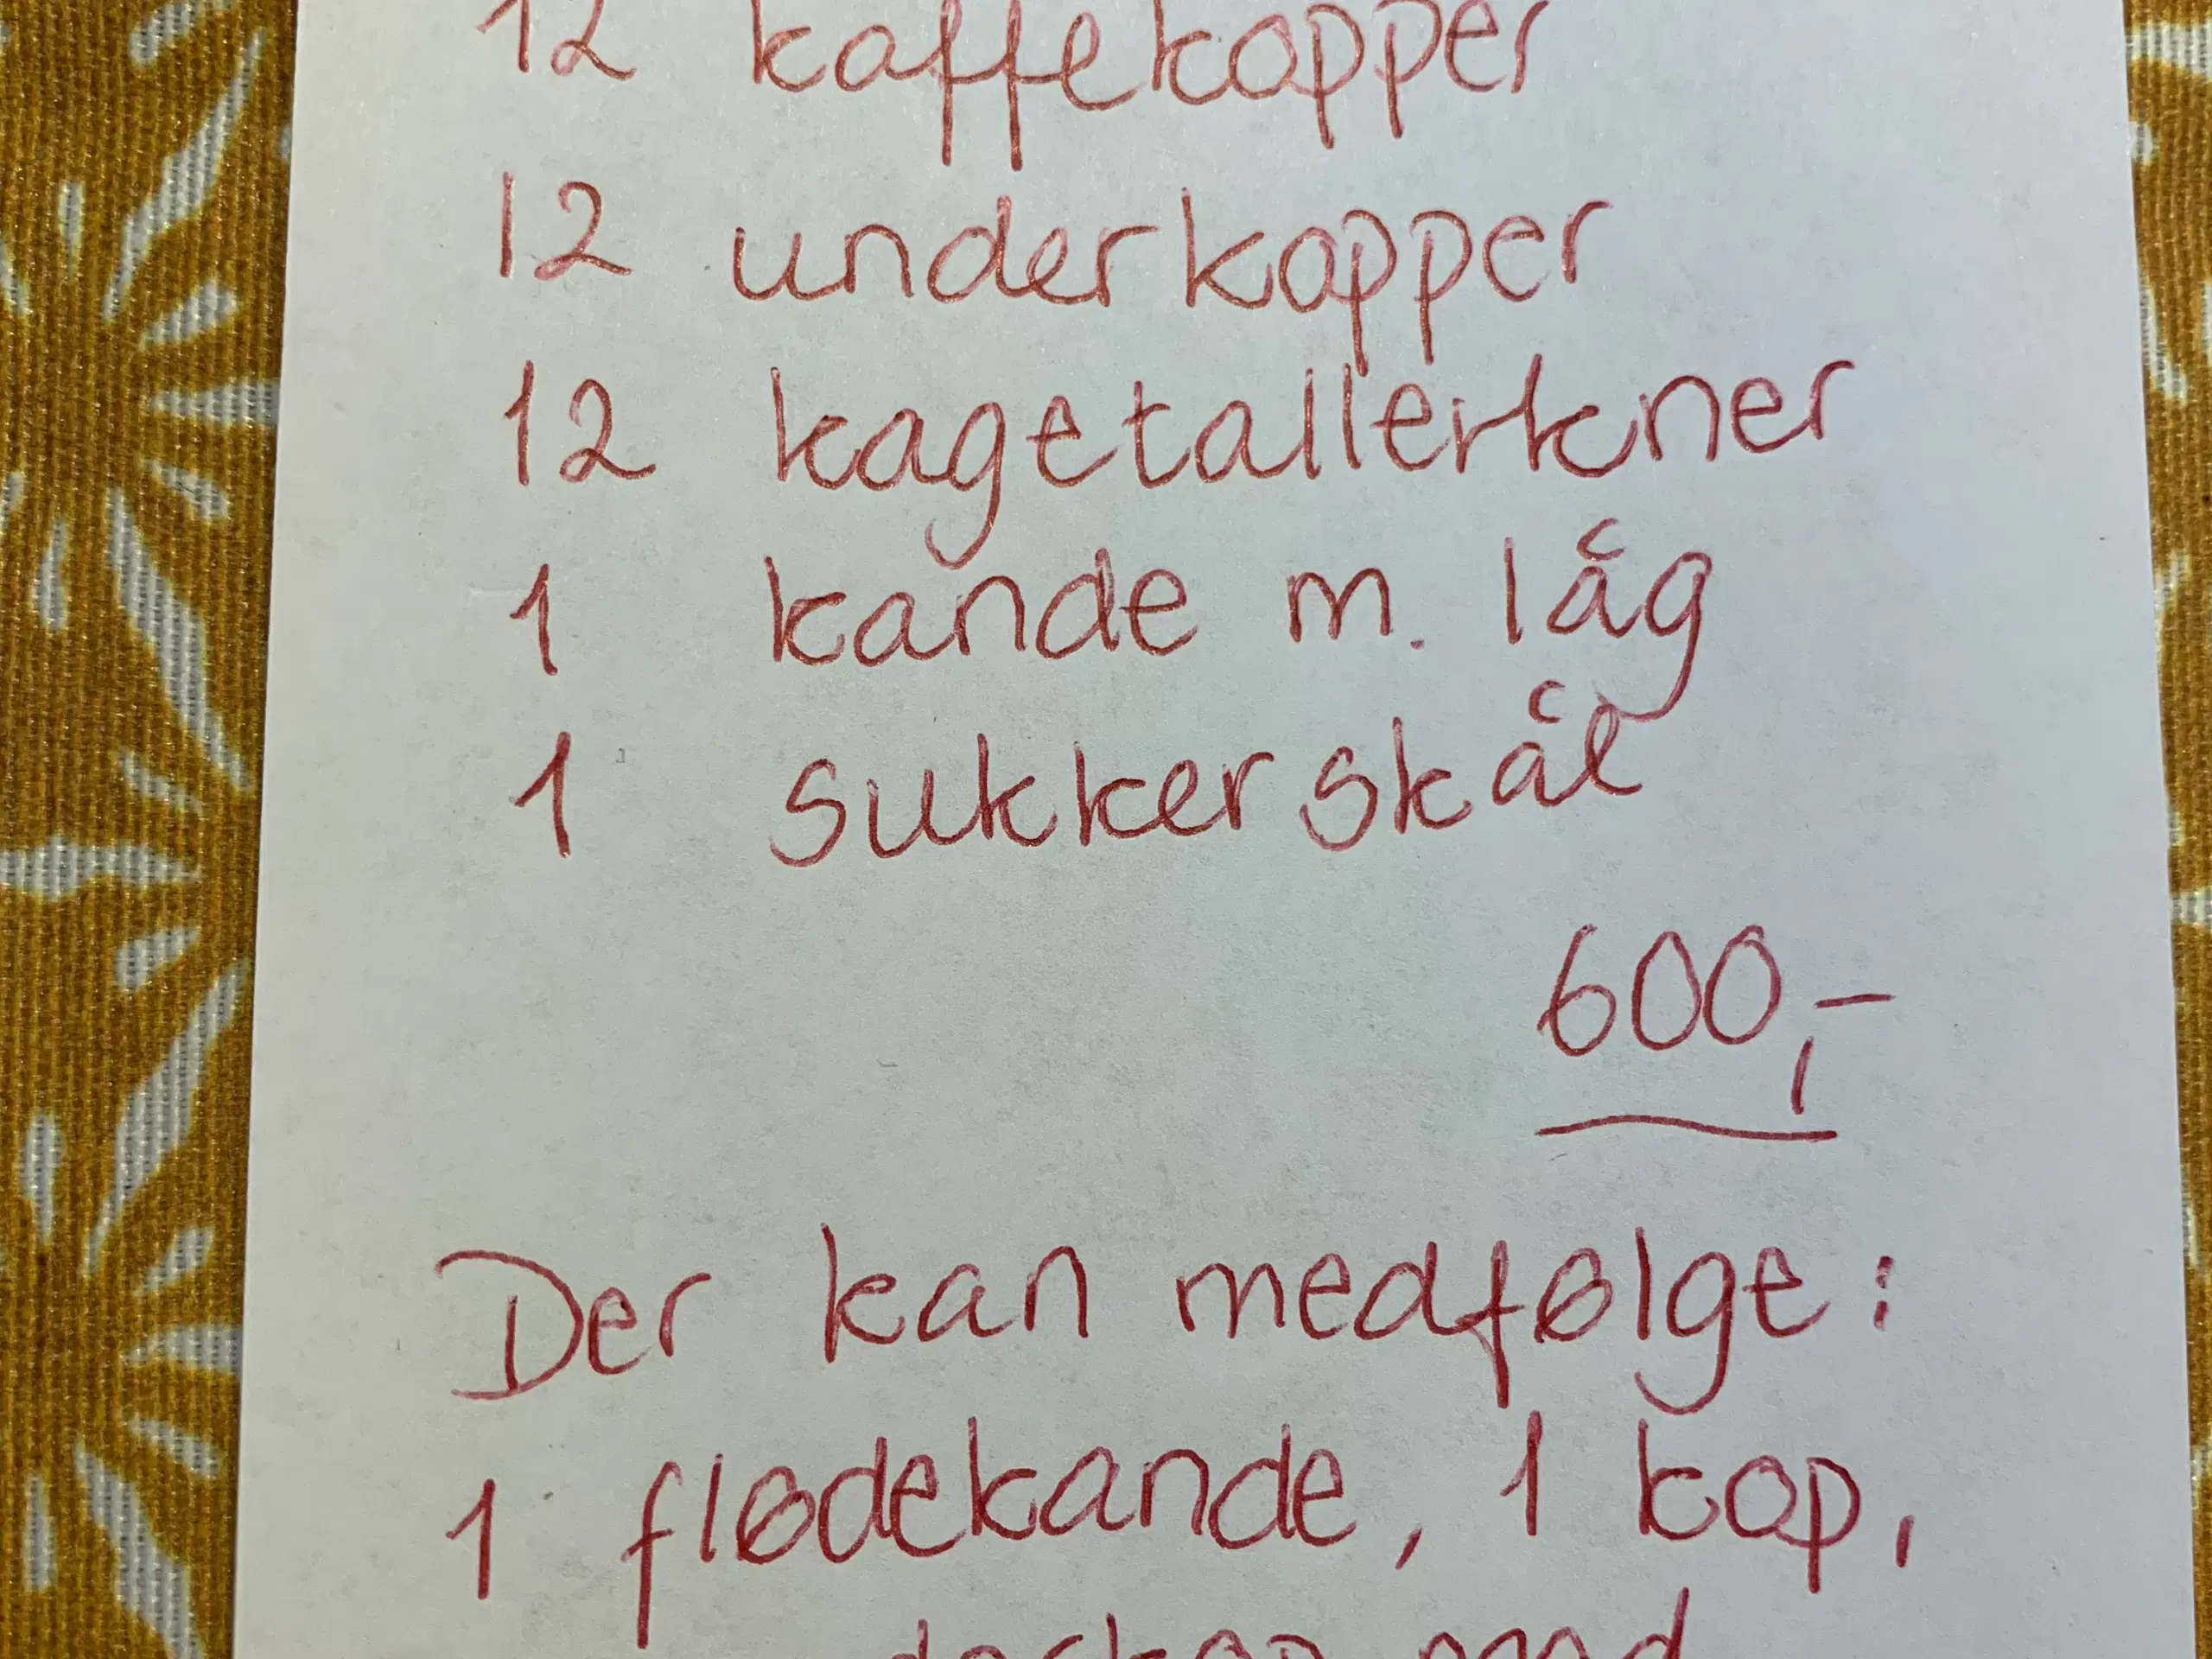 12 kaffekopper
12 underkopper
12 kagetallerkner
1 kande m. låg
1 sukkerskål
600,-
Der kan medfølge:
1 flødekande, 1 kop,